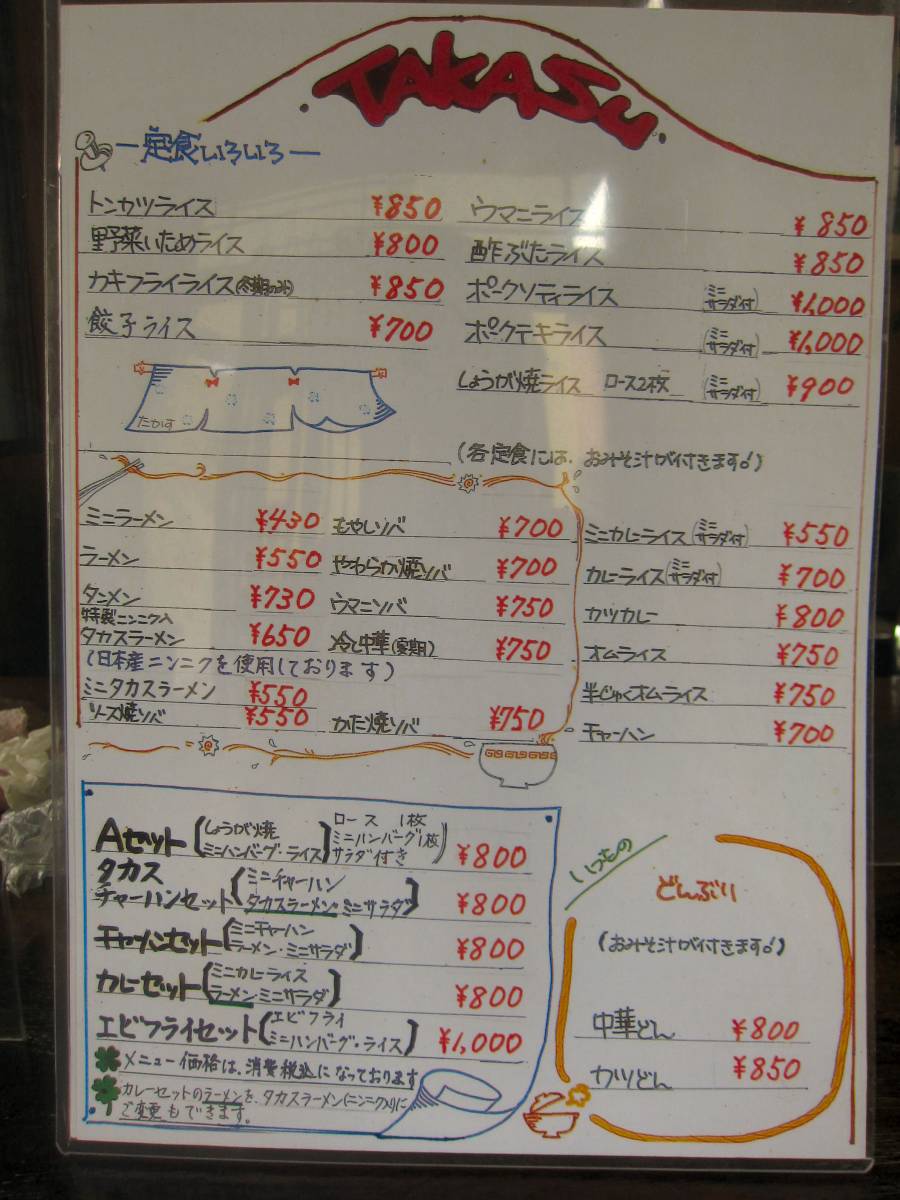 TAKASU
一定食いろいろ一
トンカツライス ¥850
野菜いためライス ¥800
カキフライライス(冬期のみ) ¥850
餃子ライス ¥700
ウマニライス ¥850
酢ぶたライス ¥850
ポークソティライス (ミニサラダ付) ¥1,000
ポークテキライス (ミニサラダ付) ¥1,000
しょうが焼ライス ロース2枚 (ミニサラダ付) ¥900
たかす
(各定食には、おみそ汁が付きます♪)
ミニラーメン ¥430
ラーメン ¥550
タンメン ¥730
特製ニンニク入
タカスラーメン ¥650
(日本産ニンニクを使用しております)
ミニタカスラーメン ¥550
ソース焼ソバ ¥550
もやしソバ ¥700
やわらか焼ソバ ¥700
ウマニソバ ¥750
冷し中華(夏期) ¥750
かた焼ソバ ¥750
ミニカレーライス(ミニサラダ付) ¥550
カレーライス(ミニサラダ付) ¥700
カツカレー ¥800
オムライス ¥750
半じゅくオムライス ¥750
チャーハン ¥700
Aセット(しょうが焼 ミニハンバーグ・ライス) ロース 1枚 ミニハンバーグ1枚 サラダ付き) ¥800
タカス
チャーハンセット(ミニチャーハン タカスラーメン・ミニサラダ) ¥800
チャーハンセット(ミニチャーハン ラーメン・ミニサラダ) ¥800
カレーセット(ミニカレーライス ラーメン ミニサラダ) ¥800
エビフライセット(エビフライ ミニハンバーグ・ライス) ¥1,000
メニュー価格は、消費税込になっております
カレーセットのラーメンを、タカスラーメン(ニンニク入り)に
ご変更もできます。
いつもの
どんぶり
(おみそ汁が付きます♪)
中華どん ¥800
カツどん ¥850